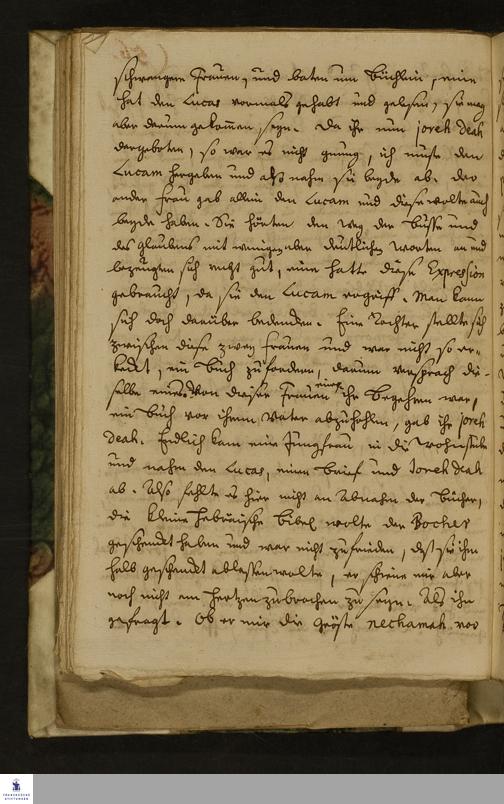 schwangere Frauen, und baten um Büchlein, eine
hat den Lucas vormals gehabt und gelesen, sie mag
aber darum gekom̅en seyn. Da ihr nun joreh deah
dargeboten, so war es nicht genug, ich muste den
Lucam hergeben und also nahm sie beyde ab. der
ander Frau gab allein den Lucam und diese wolte auch
beyde haben. Sie hörten den Weg der Busse und
des Glaubens mit wenigen aber deutlichen worten an und
bezeugten sich recht gut, eine hatte diese Expression
gebraucht, da sie den Lucam ergriff. Man kann
sich doch darüber bedencken. Eine Tochter stellte sich
zwischen diese zwey Frauen und war nicht so er-
kent, ein Buch zu fordern, darum versprach die-
selbe eines. Von dieser Frauen einer ihr begehren war,
ein Buch vor ihrem Vater abzuhohlen, gab ihr joreh
deah. Endlich kam eine Jungfrau in die Wohnstube
und nahm den Lucas, einen brief und Joreh deah
ab. Also fehlte es hier nicht an Abnahm der Bücher,
die kleine hebräische Bibel wolte der Bocher
geschenckt haben und war nicht zufrieden, daß sie ihm
halb geschenckt ablassen wolte, er schiene mir aber
noch nicht am Hertzen zubrochen zu seyn. Als ihn
gefragt. Ob er mir die gröste nechamah vor